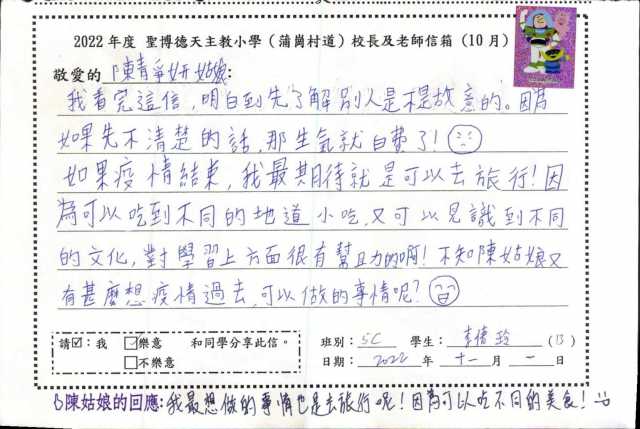 2022 年度 聖博德天主教小學(蒲崗村道)校長及老師信箱(10月)
敬愛的 陳靜妍姑娘:
我看完這信,明白到先了解別人是不是故意的。因為
如果先不清楚的話,那生氣就白費了!
如果疫情結束,我最期待就是可以去旅行!因
為可以吃到不同的地道小吃,又可以見識到不同
的文化,對學習上方面很有幫助的啊!不知陳姑娘又
有甚麼想疫情過去,可以做的事情呢?
請☑:我 □樂意 和同學分享此信。
□不樂意
班別: 5C 學生: 李倩玲 (13)
日期: 2022 年 十一 月 一 日
陳姑娘的回應:我最想做的事情也是去旅行呢!因為可以吃不同的美食!